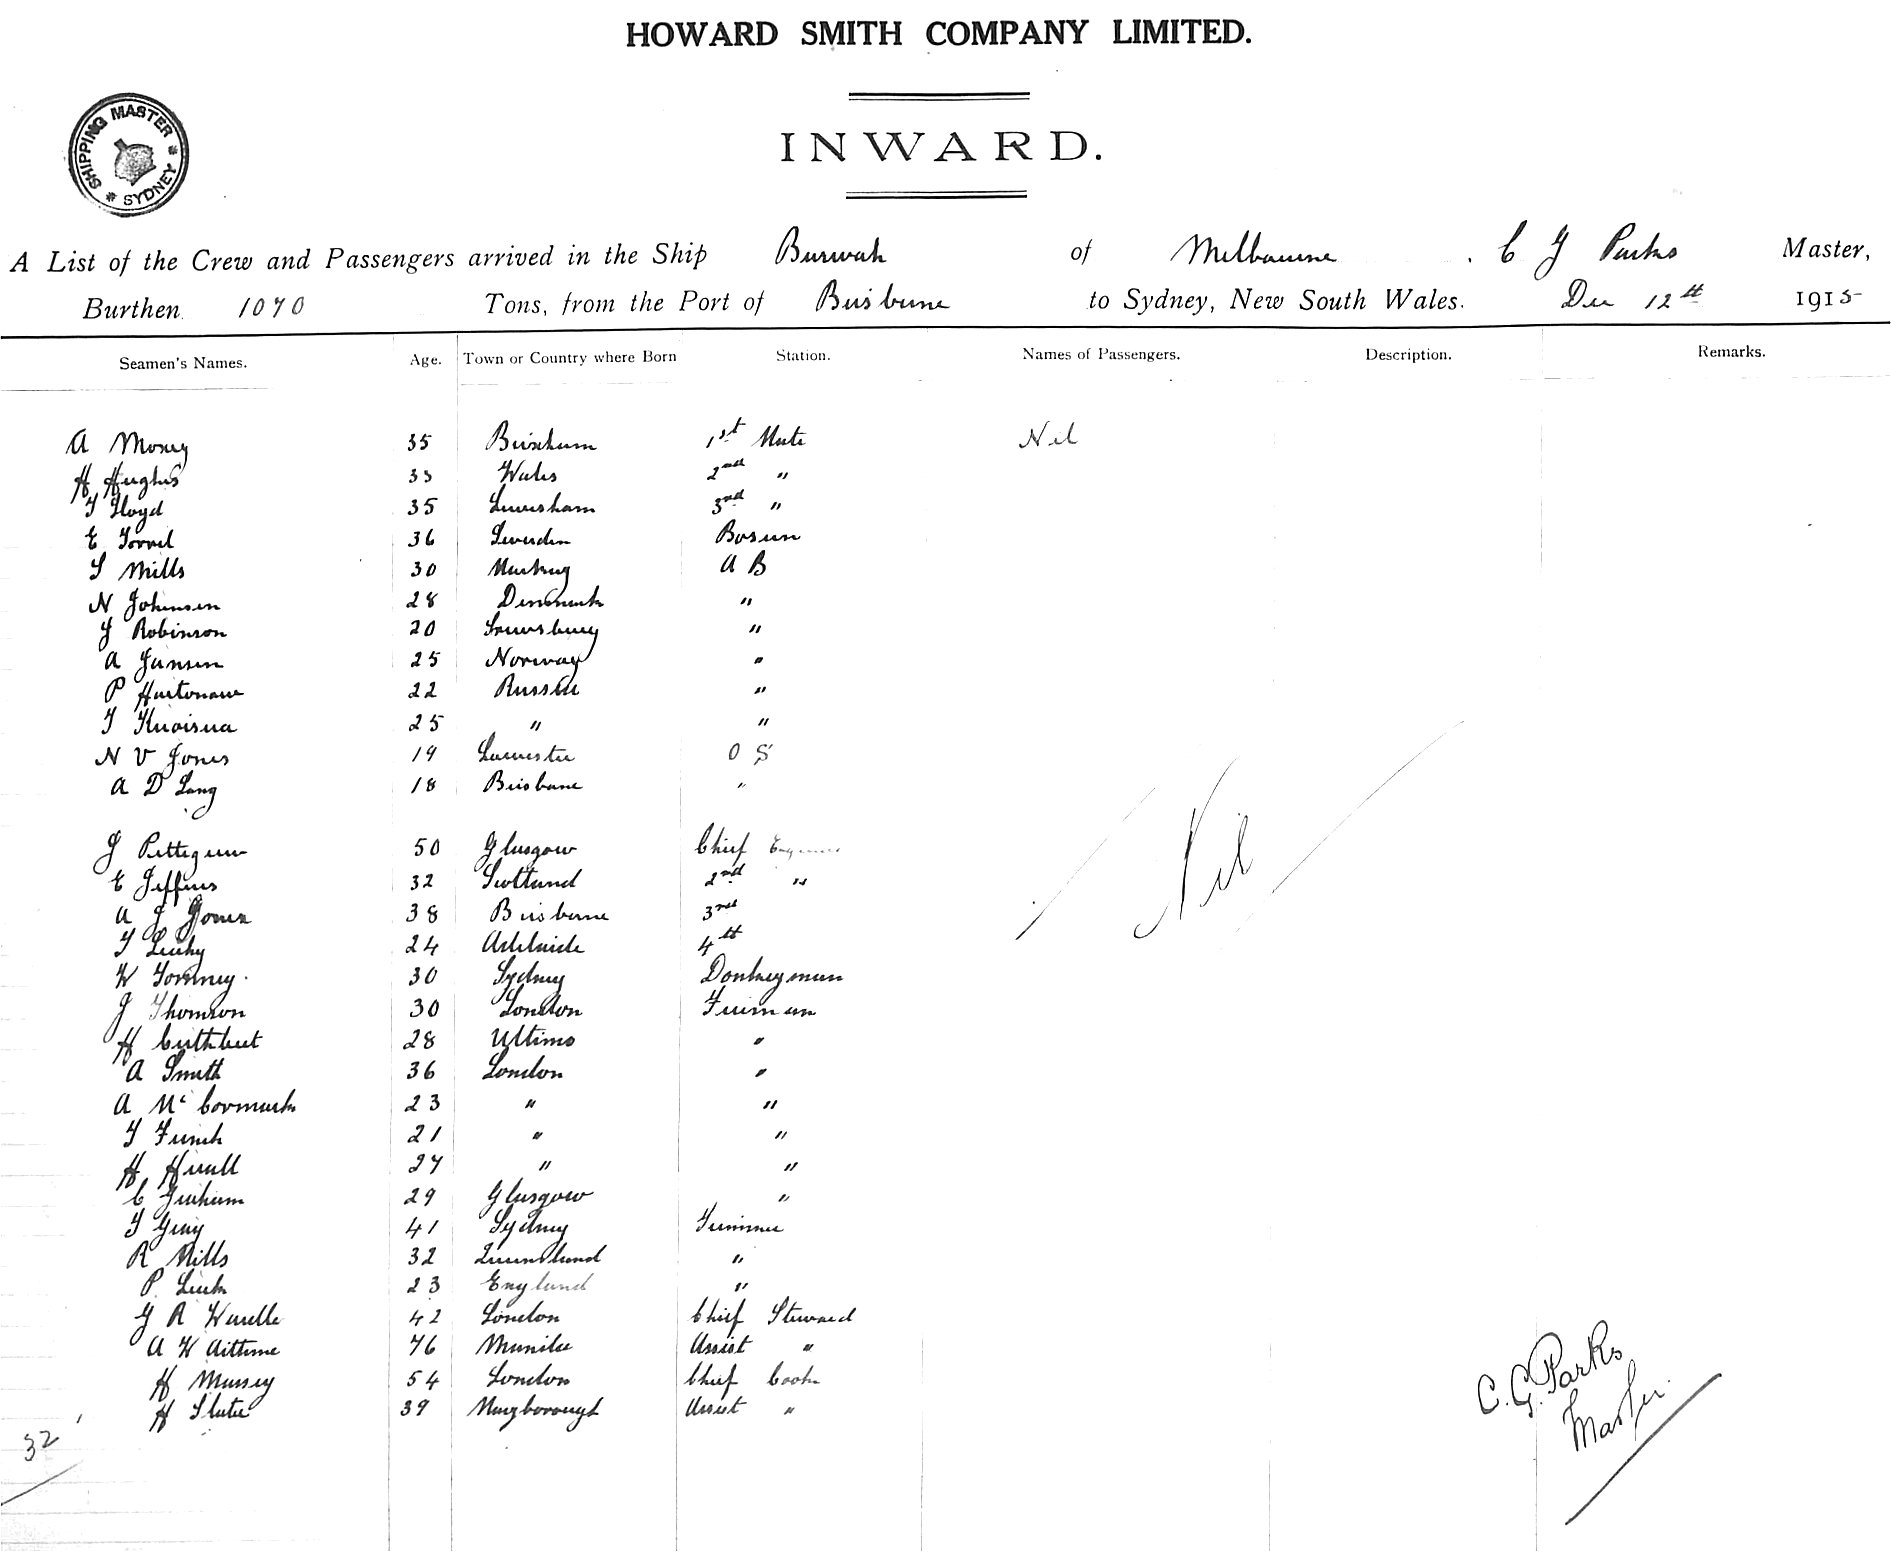 HOWARD SMITH COMPANY LIMITED.
INWARD.
SHIPPING MASTER * SYDNEY *
A List of the Crew and Passengers arrived in the Ship Burwah of Melbourne . C G Parks Master,
Burthen 1070 Tons, from the Port of Brisbane to Sydney, New South Wales. Dec 12th 1915
Seamen's Names. Age. Town or Country where Born Station. Names of Passengers. Description. Remarks.
A Morey 35 Brixham 1st Mate Nil
H Hughes 33 Wales 2nd "
T Lloyd 35 Lewisham 3rd "
E 36 Sweden Bosun
S Mills 30 A B
N Johansen 28 Denmark "
J Robinson 20 "
A Jansen 25 Norway "
P 22 Russia "
T 25 " "
N V Jones 19 Leicester O S
A D Lang 18 Brisbane "
J Pettigrew 50 Glasgow Chief Engineer
E Jeffries 32 Scotland 2nd "
A J 38 Brisbane 3rd
T Leahy 24 Adelaide 4th
W 30 Sydney Donkeyman
J Thomson 30 London Fireman
H Cuthbert 28 Ultimo "
A Smith 36 London "
A McCormack 23 " "
T French 21 " "
H 27 " "
C Graham 29 Glasgow "
T Gray 41 Sydney Trimmer
R Mills 32 Queensland "
P. 23 England "
G R 42 London Chief Steward
A W 46 Manila Assist "
H Massey 54 London Chief Cook
H Slater 39 Maryborough Assist "
Nil
32
C. G. Parks
Master.